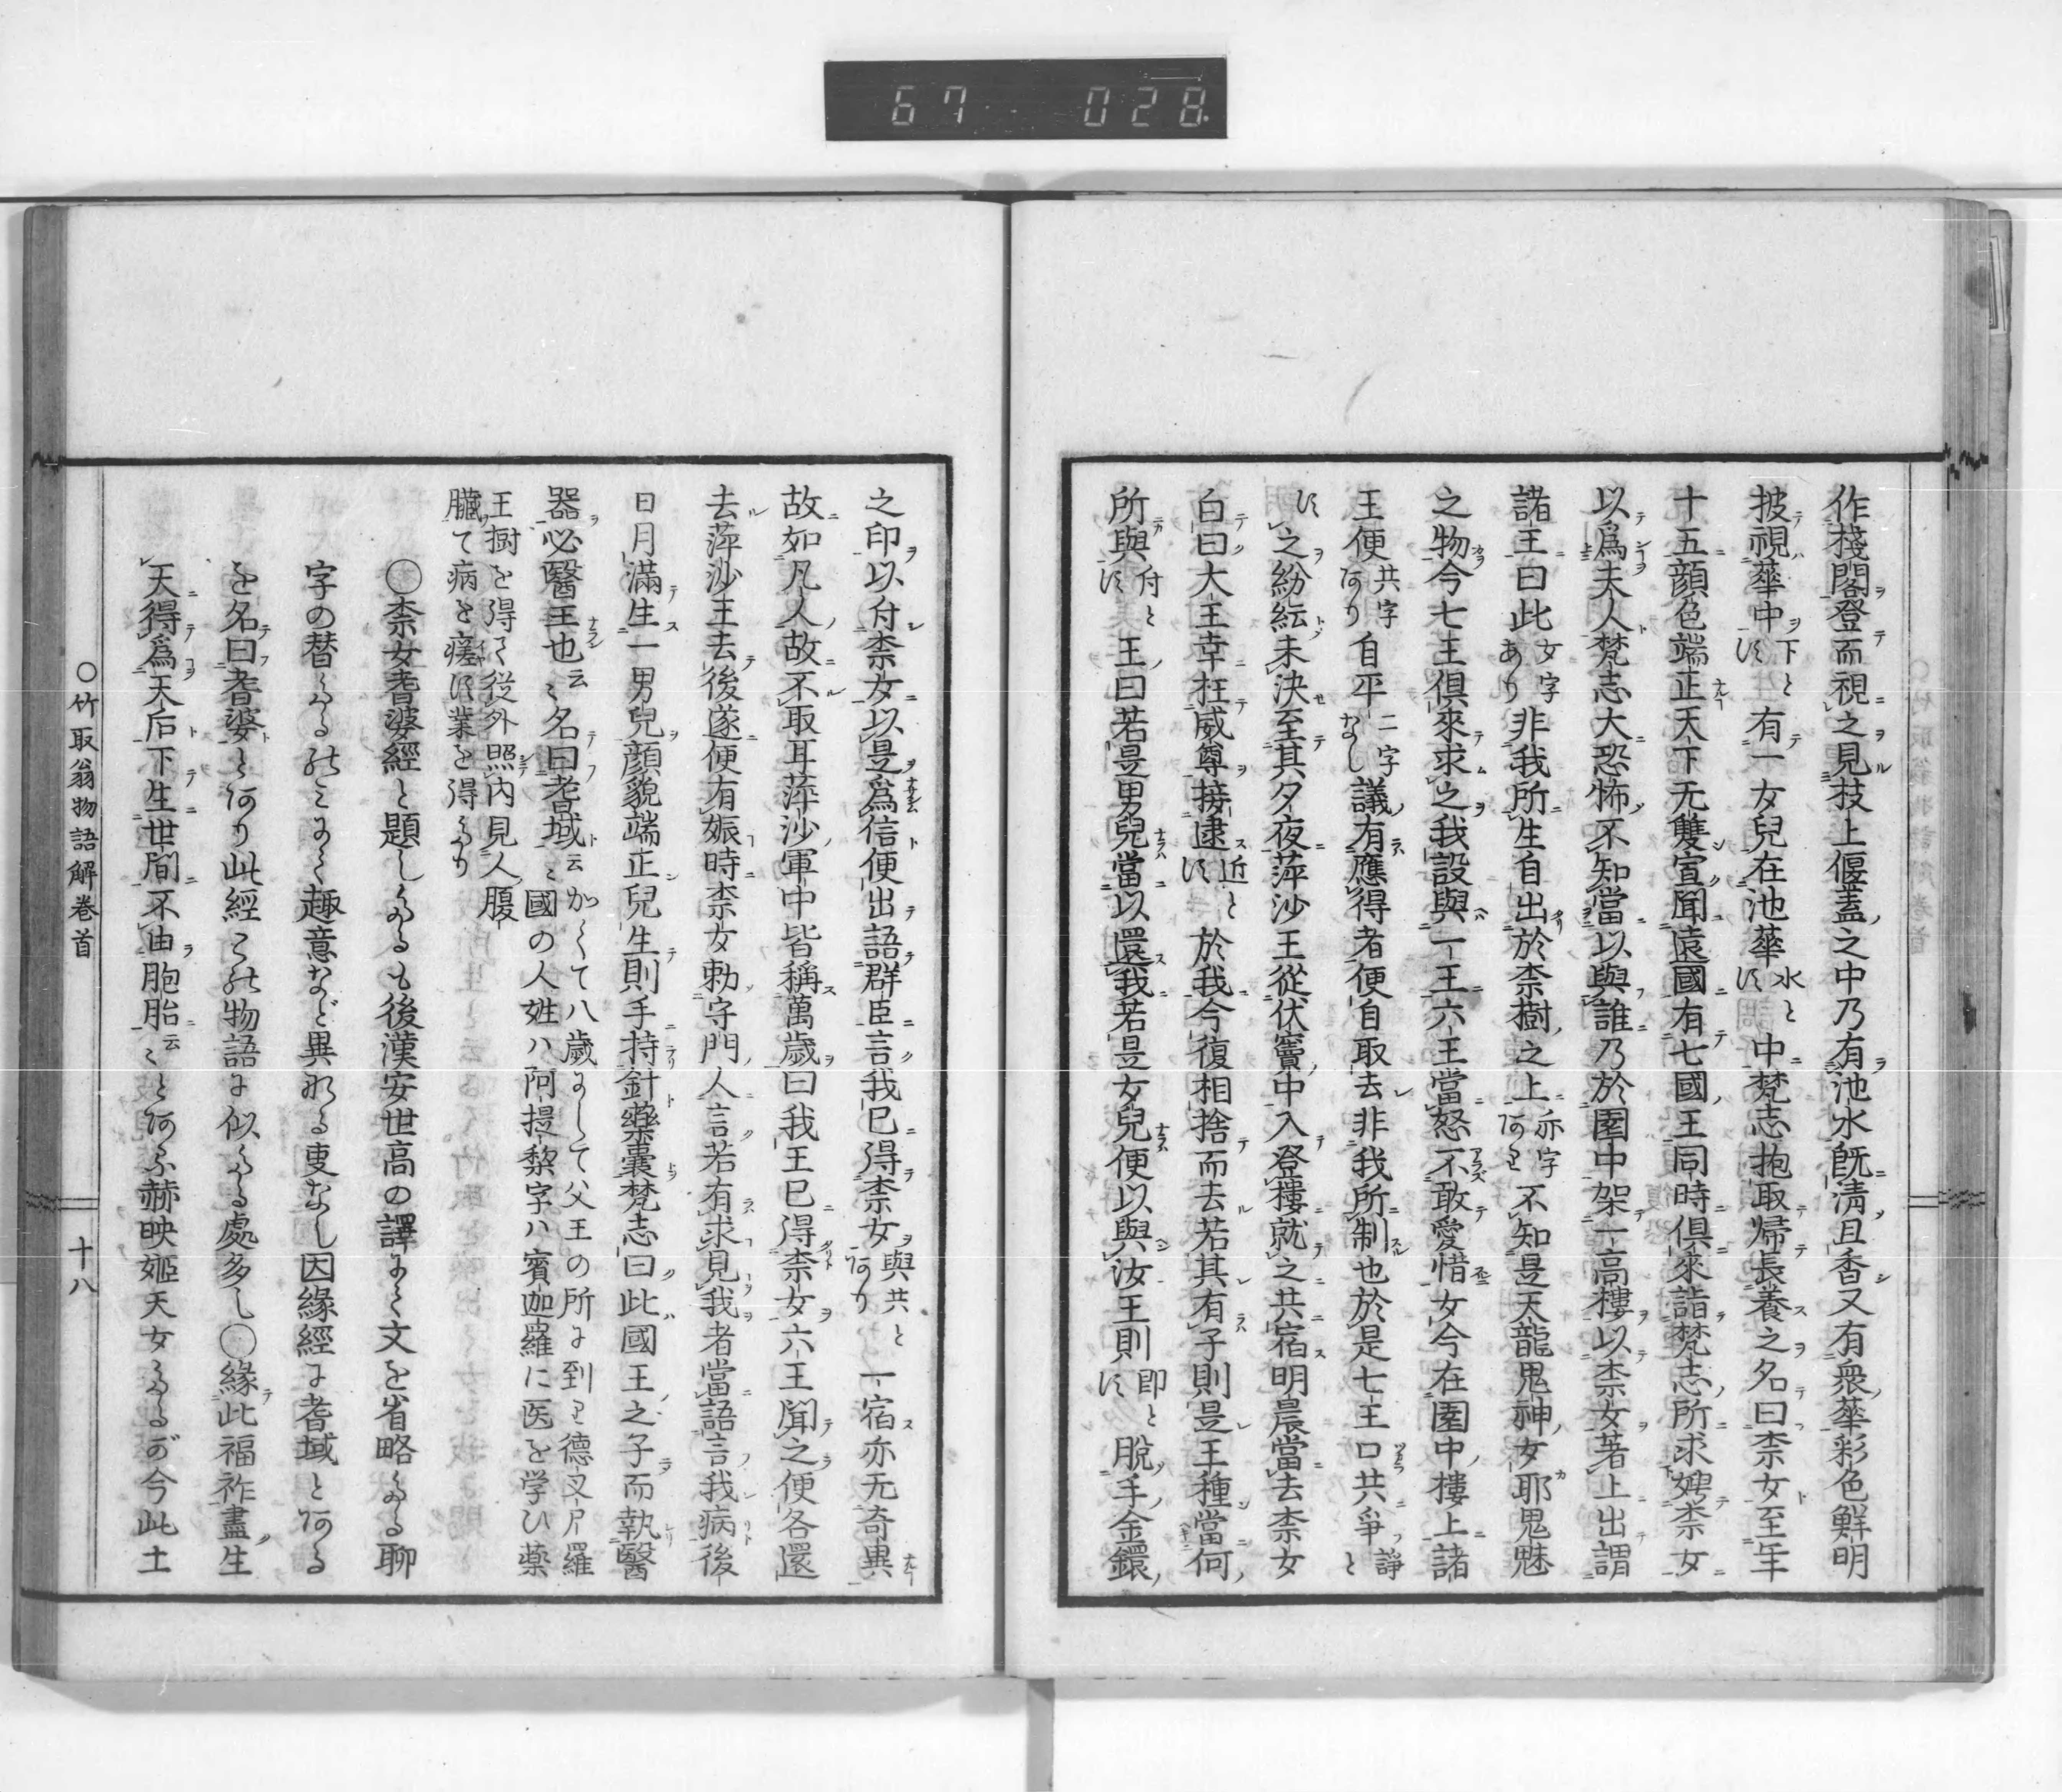 67 028
作棧閣登而視之見枝上偃蓋之中乃有池水既清且香又有衆華彩色鮮明
披視華中下とす有一女兒在池華水とす中梵志抱取帰長養之名曰柰女至年
十五顔色端正天下无雙宣聞遠國有七國王同時俱來詣梵志所求娉柰女
以爲夫人梵志大恐怖不知當以與誰乃於園中架一高樓以柰女著上出謂
諸王曰此女字あり非我所生自出於柰樹之上亦字あり不知是天龍鬼神女耶鬼魅
之物今七王俱來求之我設與一王六王當怒不敢愛惜女今在園中樓上諸
王便共字あり自平二字なし議有應得者便自取去非我所制也於是七王口共爭諍と
す之紛紜未決至其夕夜蓱沙王從伏竇中入登樓就之共宿明晨當去柰女
白曰大王幸枉威尊接逮近とす於我今復相捨而去若其有子則是王種當何
所與付とす王曰若是男兒當以還我若是女兒便以與汝王則即とす脫手金鐶
之印以付柰女以是爲信便出語群臣言我已得柰女與共とあり一宿亦无奇異
故如凡人故不取耳蓱沙軍中皆稱萬歲曰我王已得柰女六王聞之便各還
去蓱沙王去後遂便有娠時柰女勅守門人言若有求見我者當語言我病後
日月滿生一男兒顔貌端正兒生則手持針藥囊梵志曰此國王之子而執醫
器必醫王也云々名曰耆域云々かくて八歲にして父王の所に到り德叉尸羅
國の人姓ハ阿提黎字ハ賓迦羅に医を学ひ藥
王樹を得て從外照内見人腹
臟て病を瘥す業を得たり
○柰女耆婆經と題したるも後漢安世高の譯にて文を省略たる聊
字の替たるのミにて趣意など異れる事なし因緣經に耆域とある
を名曰耆婆とあり此經この物語に似たる處多し○緣此福祚盡生
天得爲天后下生世間不由胞胎云々とあふ赫映姬天女なるが今此土
○竹取翁物語解卷首
十八